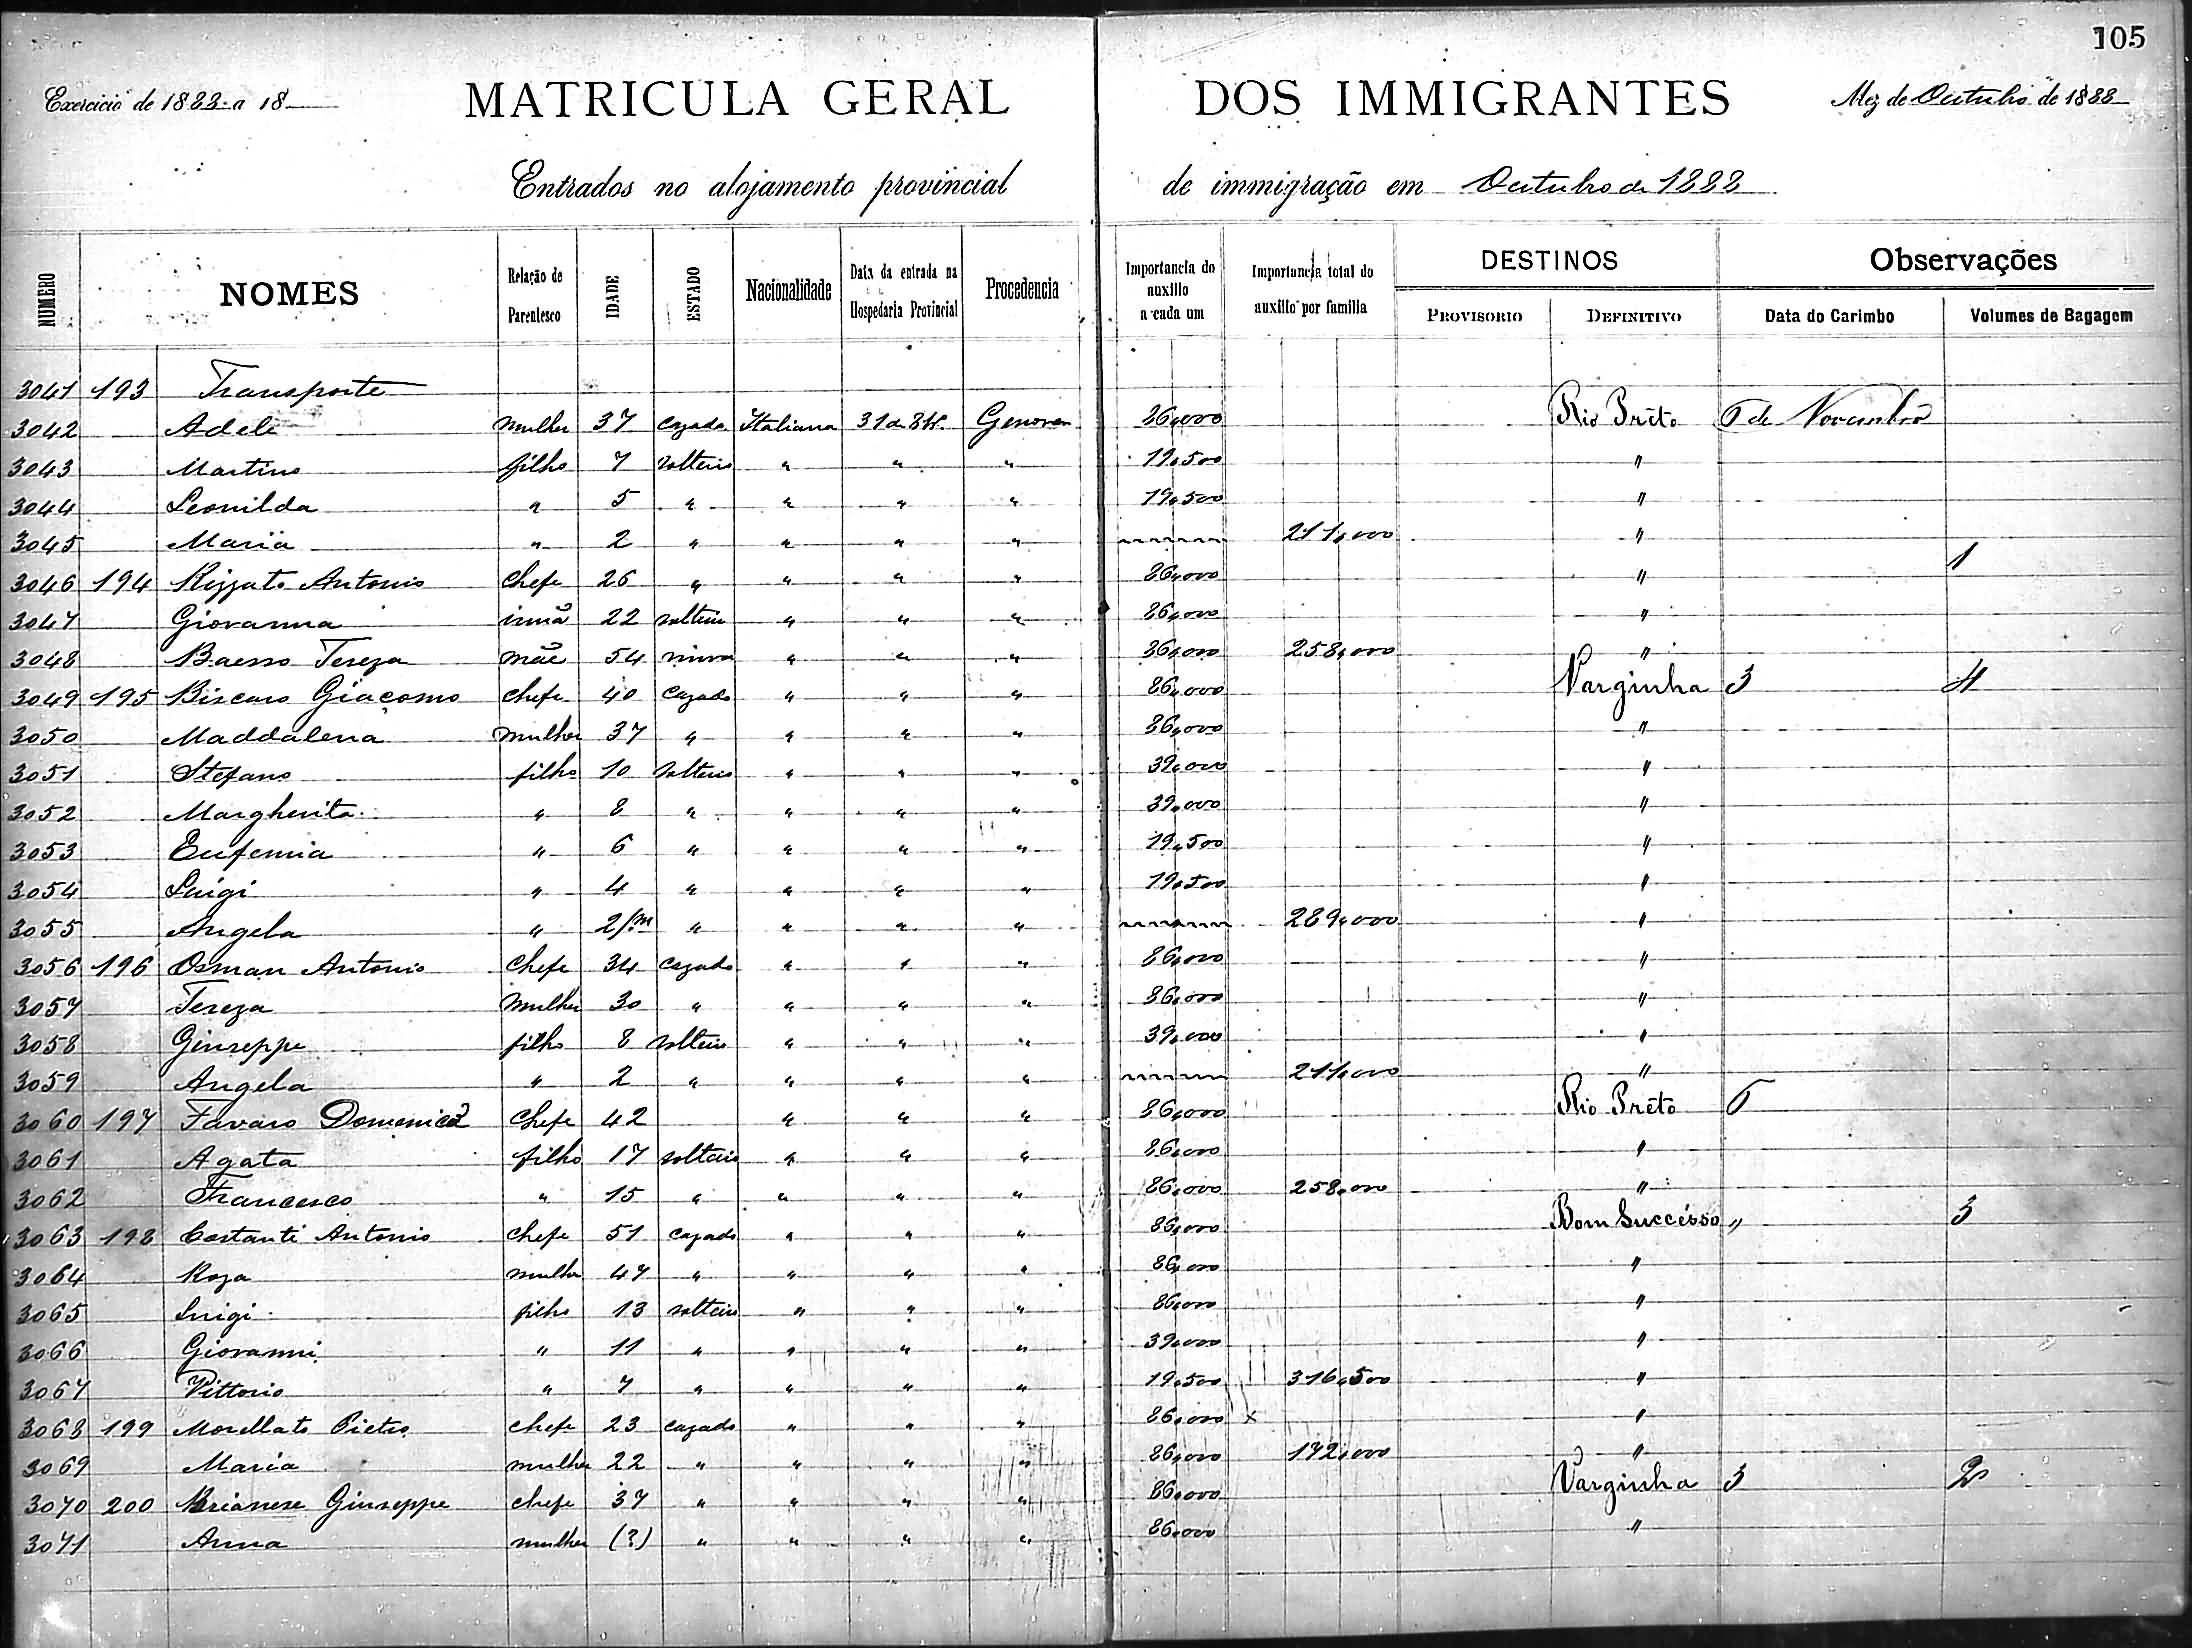 105
Exercicio de 1888 a 18
MATRICULA GERAL DOS IMMIGRANTES
Mez de Outubro de 1888
Entrados no alojamento provincial de immigração em Outubro de 1888
NUMERO NOMES Relação de Parentesco IDADE ESTADO Nacionalidade Data da entrada na Hospedaria Provincial Procedencia Importancia do auxilio a cada um Importancia total do auxilio por familia DESTINOS PROVISORIO DEFINITIVO Observações Data do Carimbo Volumes de Bagagem
3041 193 Transporte
3042 Adele mulher 37 cazada Italiana 31 a 8br. Genova 86,000 Rio Prêto 6 de Novembro
3043 Martino filho 7 solteiro " " " 19,500 "
3044 Leonilda " 5 " " " " 19,500 "
3045 Maria " 2 " " " " 211,000 "
3046 194 Rizzato Antonio Chefe 26 " " " " 86,000 " 1
3047 Giovanna irmã 22 solteira " " " 86,000 "
3048 Baesso Tereza mãe 54 viuva " " " 86,000 258,000 "
3049 195 Biscaro Giacomo chefe 40 cazado " " " 86,000 Varginha 3 4
3050 Maddalena mulher 37 " " " " 86,000 "
3051 Stefano filho 10 solteiro " " " 39,000 "
3052 Margherita " 8 " " " " 39,000 "
3053 Eufemia " 6 " " " " 19,500 "
3054 Luigi " 4 " " " " 19,500 "
3055 Angela " 2/m " " " " 289,000 "
3056 196 Osman Antonio Chefe 34 cazado " " " 86,000 "
3057 Tereza mulher 30 " " " " 86,000 "
3058 Giuseppe filho 8 solteiro " " " 39,000 "
3059 Angela " 2 " " " " 211,000 "
3060 197 Favaro Domenico Chefe 42 " " " 86,000 Rio Prêto 6
3061 Agata filho 17 solteiro " " " 86,000 "
3062 Francesco " 15 " " " " 86,000 258,000 "
3063 198 Costanti Antonio chefe 51 cazado " " " 86,000 Bom Successo " 3
3064 Roza mulher 47 " " " " 86,000 "
3065 Luigi filho 13 solteiro " " " 86,000 "
3066 Giovanni " 11 " " " " 39,000 "
3067 Vittorio " 7 " " " " 19,500 316,500 "
3068 199 Morellato Pietro chefe 23 cazado " " " 86,000 x "
3069 Maria mulher 22 " " " " 86,000 172,000 "
3070 200 Brianese Giuseppe chefe 37 " " " " 86,000 Varginha 3 2
3071 Anna mulher (?) " " " " 86,000 "